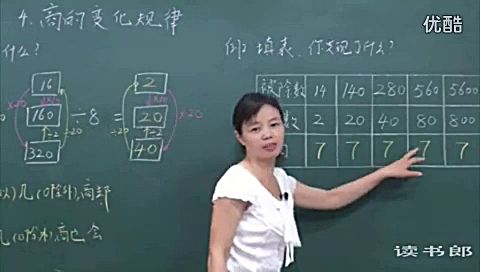 优酷
4.商的变化规律
什么?
例2 填表,你发现了什么?
16
160
320
÷8
=
2
20
40
×20
÷20
÷2
÷2
÷20
×20
被除数 14 140 280 560 5600
数 2 20 40 80 800
7 7 7 7 7
几(0除外),商都
几(0除外),商也会
读书郎